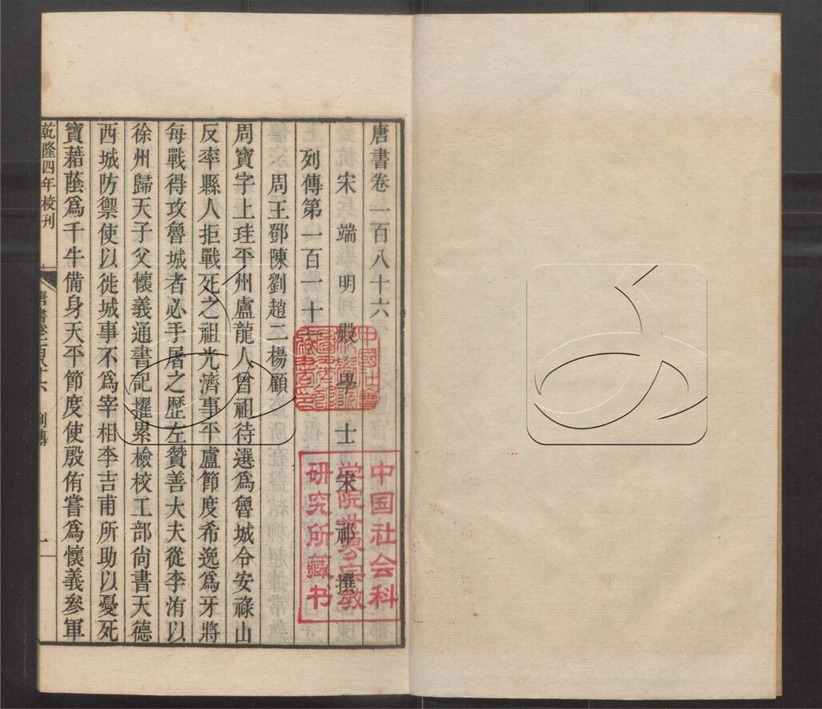 唐書卷一百八十六
宋端明殿學士宋祁撰
列傳第一百一十
周王鄧陳劉趙二楊顧
周寶字上珪平州盧龍人曾祖待選爲魯城令安祿山
反率縣人拒戰死之祖光濟事平盧節度希逸爲牙將
每戰得攻魯城者必手屠之歷左贊善大夫從李洧以
徐州歸天子父懷義通書記擢累檢校工部尚書天德
西城防禦使以徙城事不爲宰相李吉甫所助以憂死
寶藉蔭爲千牛備身天平節度使殷侑嘗爲懷義參軍
乾隆四年校刊
唐書卷一百八十六 列傳
一
中国社会科
学院世界宗教
研究所藏书